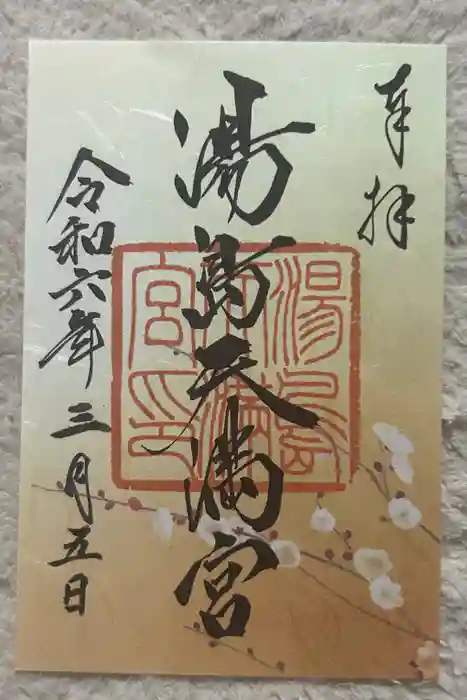 奉拝
湯島天満宮
令和六年三月五日
湯島
天満
宮印